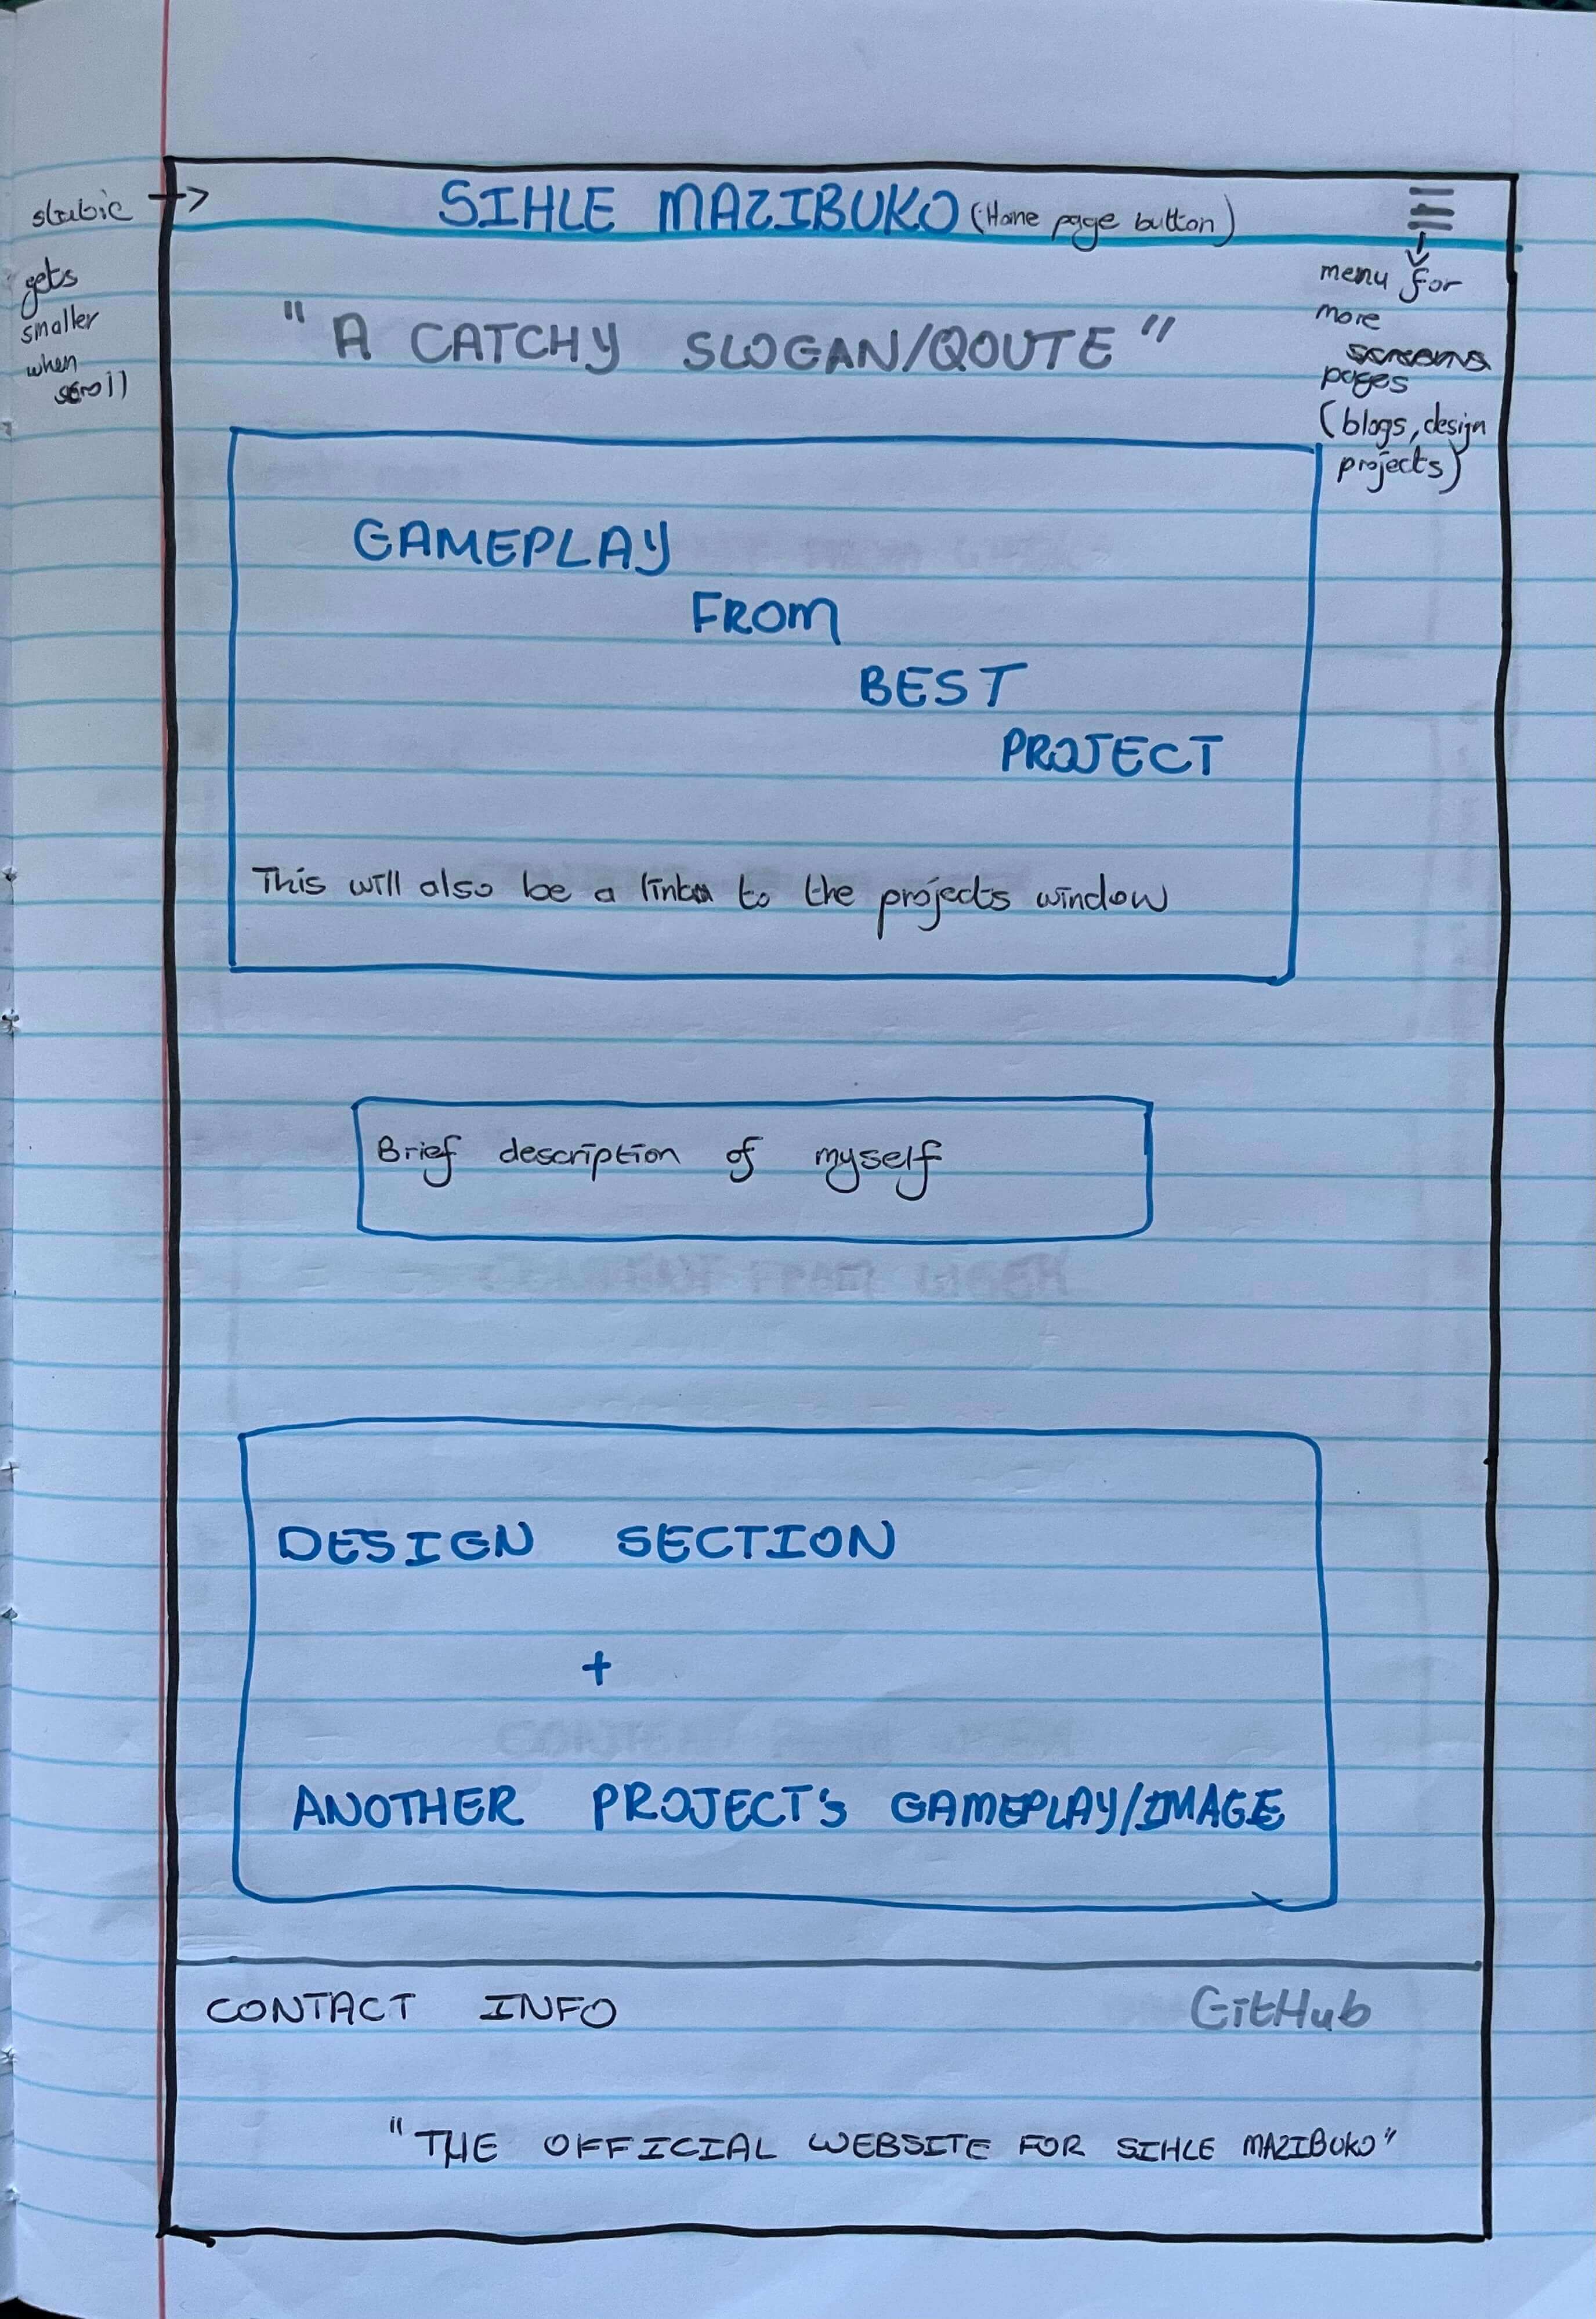 static
SIHLE MAZIBUKO (Home page button)
gets
smaller
when
scroll
menu for
more
pages
(blogs, design
projects)
"A CATCHY SLOGAN/QOUTE"
GAMEPLAY
FROM
BEST
PROJECT
This will also be a link to the projects window
Brief description of myself
DESIGN SECTION
+
ANOTHER PROJECT's GAMEPLAY/IMAGE
CONTACT INFO
GitHub
"THE OFFICIAL WEBSITE FOR SIHLE MAZIBUKO"